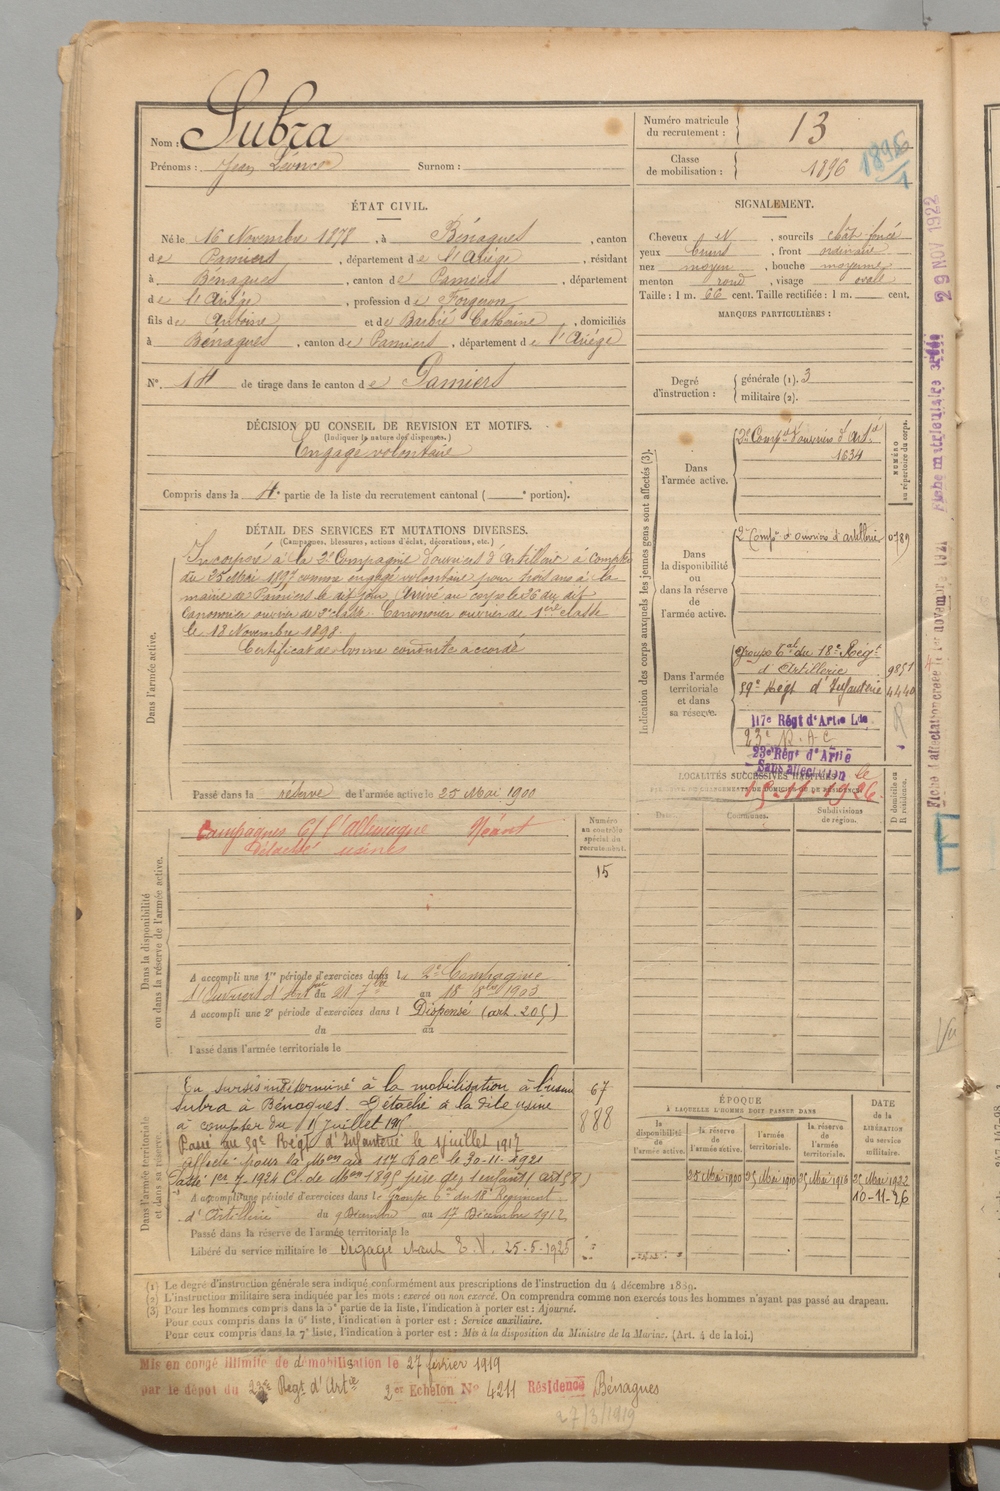 Nom : Subra
Prénoms : Jean Léonce Surnom :
Numéro matricule du recrutement : 13
Classe de mobilisation : 1896
1896/1
ÉTAT CIVIL.
Né le 16 Novembre 1878, à Bénagues, canton
de Pamiers, département de l'Ariège, résidant
à Bénagues, canton de Pamiers, département
de l'Ariège, profession de Forgeron
fils de Antoine et de Barbié Catherine, domiciliés
à Bénagues, canton de Pamiers, département de l'Ariège
N° 14 de tirage dans le canton de Pamiers
SIGNALEMENT.
Cheveux et N, sourcils chât foncé
yeux bruns, front ordinaire
nez moyen, bouche moyenne
menton rond, visage ovale
Taille : 1 m. 66 cent. Taille rectifiée : 1 m. cent.
MARQUES PARTICULIÈRES :
Degré d'instruction : générale (1). 3
militaire (2).
DÉCISION DU CONSEIL DE REVISION ET MOTIFS.
(Indiquer la nature des dispenses.)
Engagé volontaire
Compris dans la 4e partie de la liste du recrutement cantonal ( e portion).
DÉTAIL DES SERVICES ET MUTATIONS DIVERSES.
(Campagnes, blessures, actions d'éclat, décorations, etc.)
Dans l'armée active.
Incorporé à la 2e Compagnie d'ouvriers d'artillerie à compter
du 25 Mai 1897 comme engagé volontaire pour trois ans à la
mairie de Pamiers le dit jour. Arrivé au corps le 26 du dit
Canonnier ouvrier de 2e classe. Canonnier ouvrier de 1ère classe
le 18 Novembre 1898.
Certificat de bonne conduite accordé
Passé dans la réserve de l'armée active le 25 Mai 1900
Indication des corps auxquels les jeunes gens sont affectés (3).
NUMÉRO au répertoire du corps.
Dans l'armée active.
2e Compie d'ouvriers d'Artie
1634
Dans la disponibilité ou dans la réserve de l'armée active.
2e Compie d'ouvriers d'artillerie 0789
Dans l'armée territoriale et dans sa réserve.
Groupe 6al du 18e Régt
d'Artillerie 9851
59e Régt d'Infanterie 4440
117e Régt d'Artie Lde
23e R.A.C
23e Régt d'Artie
Sans affectation le
15-11-1926
LOCALITÉS SUCCESSIVES HABITÉES
Dates. Communes. Subdivisions de région. D domicile ou R résidence.
Dans la disponibilité ou dans la réserve de l'armée active.
Numéro au contrôle spécial du recrutement.
15
Campagnes C/ l'Allemagne Néant
Détaché usines
A accompli une 1re période d'exercices dans la 2e Compagnie
d'Ouvriers d'Artie du 21 7bre au 18 8bre 1903
A accompli une 2e période d'exercices dans l Dispensé (art. 205)
du au
Passé dans l'armée territoriale le
Dans l'armée territoriale et dans sa réserve.
En sursis indéterminé à la mobilisation à l'usine 67
Subra à Bénagues. Détaché à la dite usine 888
à compter du 1 juillet 1917
Passé au 59e Régt d'Infanterie le 1 juillet 1917
affecté pour la Mon au 117 RAL le 30-11-1921
Passé 1er 7-1924 Cl. de Mon 1895 père de 1 enfant (art 58)
A accompli une période d'exercices dans le Groupe 6al du 18e Régiment
d'Artillerie du 9 Décembre au 17 Décembre 1912
Passé dans la réserve de l'armée territoriale le
Libéré du service militaire le Dégagé 25-5-1925
ÉPOQUE À LAQUELLE L'HOMME DOIT PASSER DANS
DATE de la LIBÉRATION du service militaire.
la disponibilité de l'armée active. la réserve de l'armée active. l'armée territoriale. la réserve de l'armée territoriale.
25 Mai 1900 25 Mai 1910 25 Mai 1916 25 Mai 1922
10-11-26
(1) Le degré d'instruction générale sera indiqué conformément aux prescriptions de l'instruction du 4 décembre 1889.
(2) L'instruction militaire sera indiquée par les mots : exercé ou non exercé. On comprendra comme non exercés tous les hommes n'ayant pas passé au drapeau.
(3) Pour les hommes compris dans la 5e partie de la liste, l'indication à porter est : Ajourné.
Pour ceux compris dans la 6e liste, l'indication à porter est : Service auxiliaire.
Pour ceux compris dans la 7e liste, l'indication à porter est : Mis à la disposition du Ministre de la Marine. (Art. 4 de la loi.)
Mis en congé illimité de démobilisation le 27 février 1919
par le dépôt du 23e Régt d'Artie 2er Echelon N° 4211 Résidence Bénagues
27/3/1919
Fiche d'affectation créée le 1er novembre 1921
Fiche matriculaire 29 NOV 1922